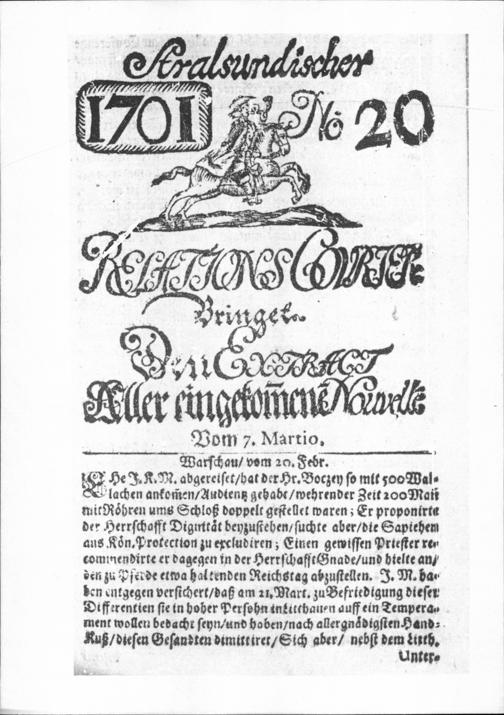 Stralsundischer
1701 No 20
RELATIONS COURIER
Bringet
Den EXTRACT
Aller eingekom̃ene Nouvelle
Vom 7. Martio.
Warschau/ vom 20. Febr.
EHe J. K. M. abgereiset/ hat der Hr. Boczey so mit 500 Wal-
lachen ankom̃en/ Audientz gehabt/ wehrender Zeit 200 Mañ
mit Röhren ums Schloß doppelt gestellet waren; Er proponirte
der Herrschafft Dignität beyzustehen/ suchte aber/ die Sapiehen
aus Kön. Protection zu excludiren; Einen gewissen Priester re-
commendirte er dagegen in der Herrschafft Gnade/ und hielte an/
den zu Pferde etwa haltenden Reichstag abzustellen. J. M. ha-
ben entgegen versichert/ daß am 21. Mart. zu Befriedigung dieser
Differentien sie in hoher Persohn in Litthauen auff ein Tempera-
ment wollen bedacht seyn/ und hoben/ nach allergnädigsten Hand-
Kuß/ diesen Gesandten dimittiret/ Sich aber/ nebst dem Litth.
Unter-